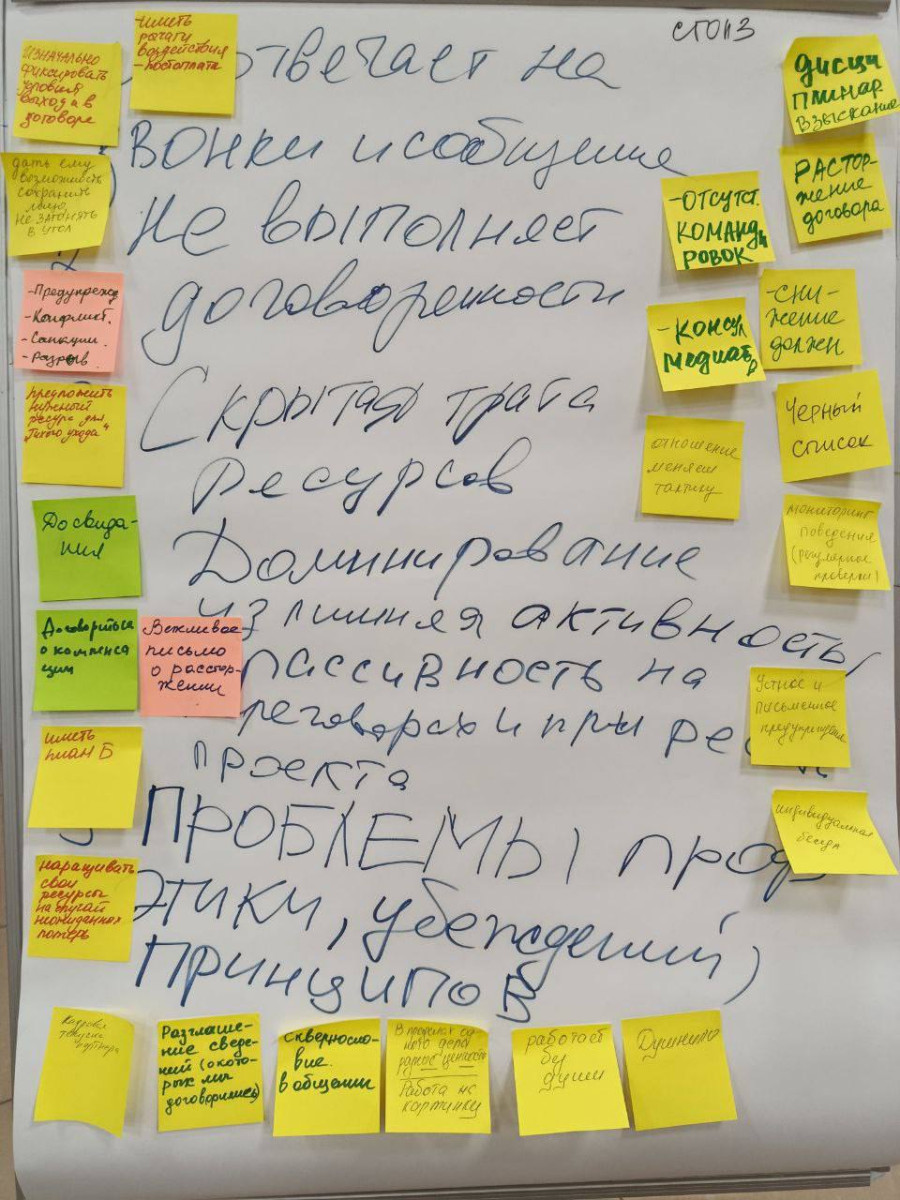 стол 3
отвечает на
вонки и сообщение
Не выполняет
договоренности
Скрытая трата
Ресурсов
Доминирование
излишняя активность/
пассивность на
реговорах и при
проекта
ПРОБЛЕМЫ проф
ЭТИКИ, убеждений,
Принципов
изначально
фиксировать
условия
выхода в
договоре
-иметь
рычаги
воздействия
-постоплата
дать ему
возможность
сохранить
лицо,
НЕ ЗАГОНЯТЬ
В УГОЛ
-Предупрежд
-Конфликт.
-Санкции.
-Разрыв
предложить
нужный
ресурс для
"Тихого ухода"
До свида-
ния
Договориться
о компенса
ции
Вежливое
письмо
о растор-
жении
иметь
план Б
наращивать
свои
ресурсы
на случай
неожиданных
потерь
дисци
плинар.
взыскание
РАСТОР-
жение
договора
-ОТСУТСТ.
КОМАНДИ
РОВОК
-СНИ-
жение
должен
-КОНСУЛ
МЕДИАТОР
Черный
список
отношение
меняем
тактику
мониторинг
поведения
(регулярные
проверки)
Устное и
письменное
предупреждение
индивидуальная
беседа
Кадровая
текучка
партнера
Разглаше-
ние сведе-
ний (о кото-
рых мы
договорились)
сквернносло-
вие
в общении
В проектах од-
ного дела
разные ценности
Работа на
картинку
работает
без
души
Душнила